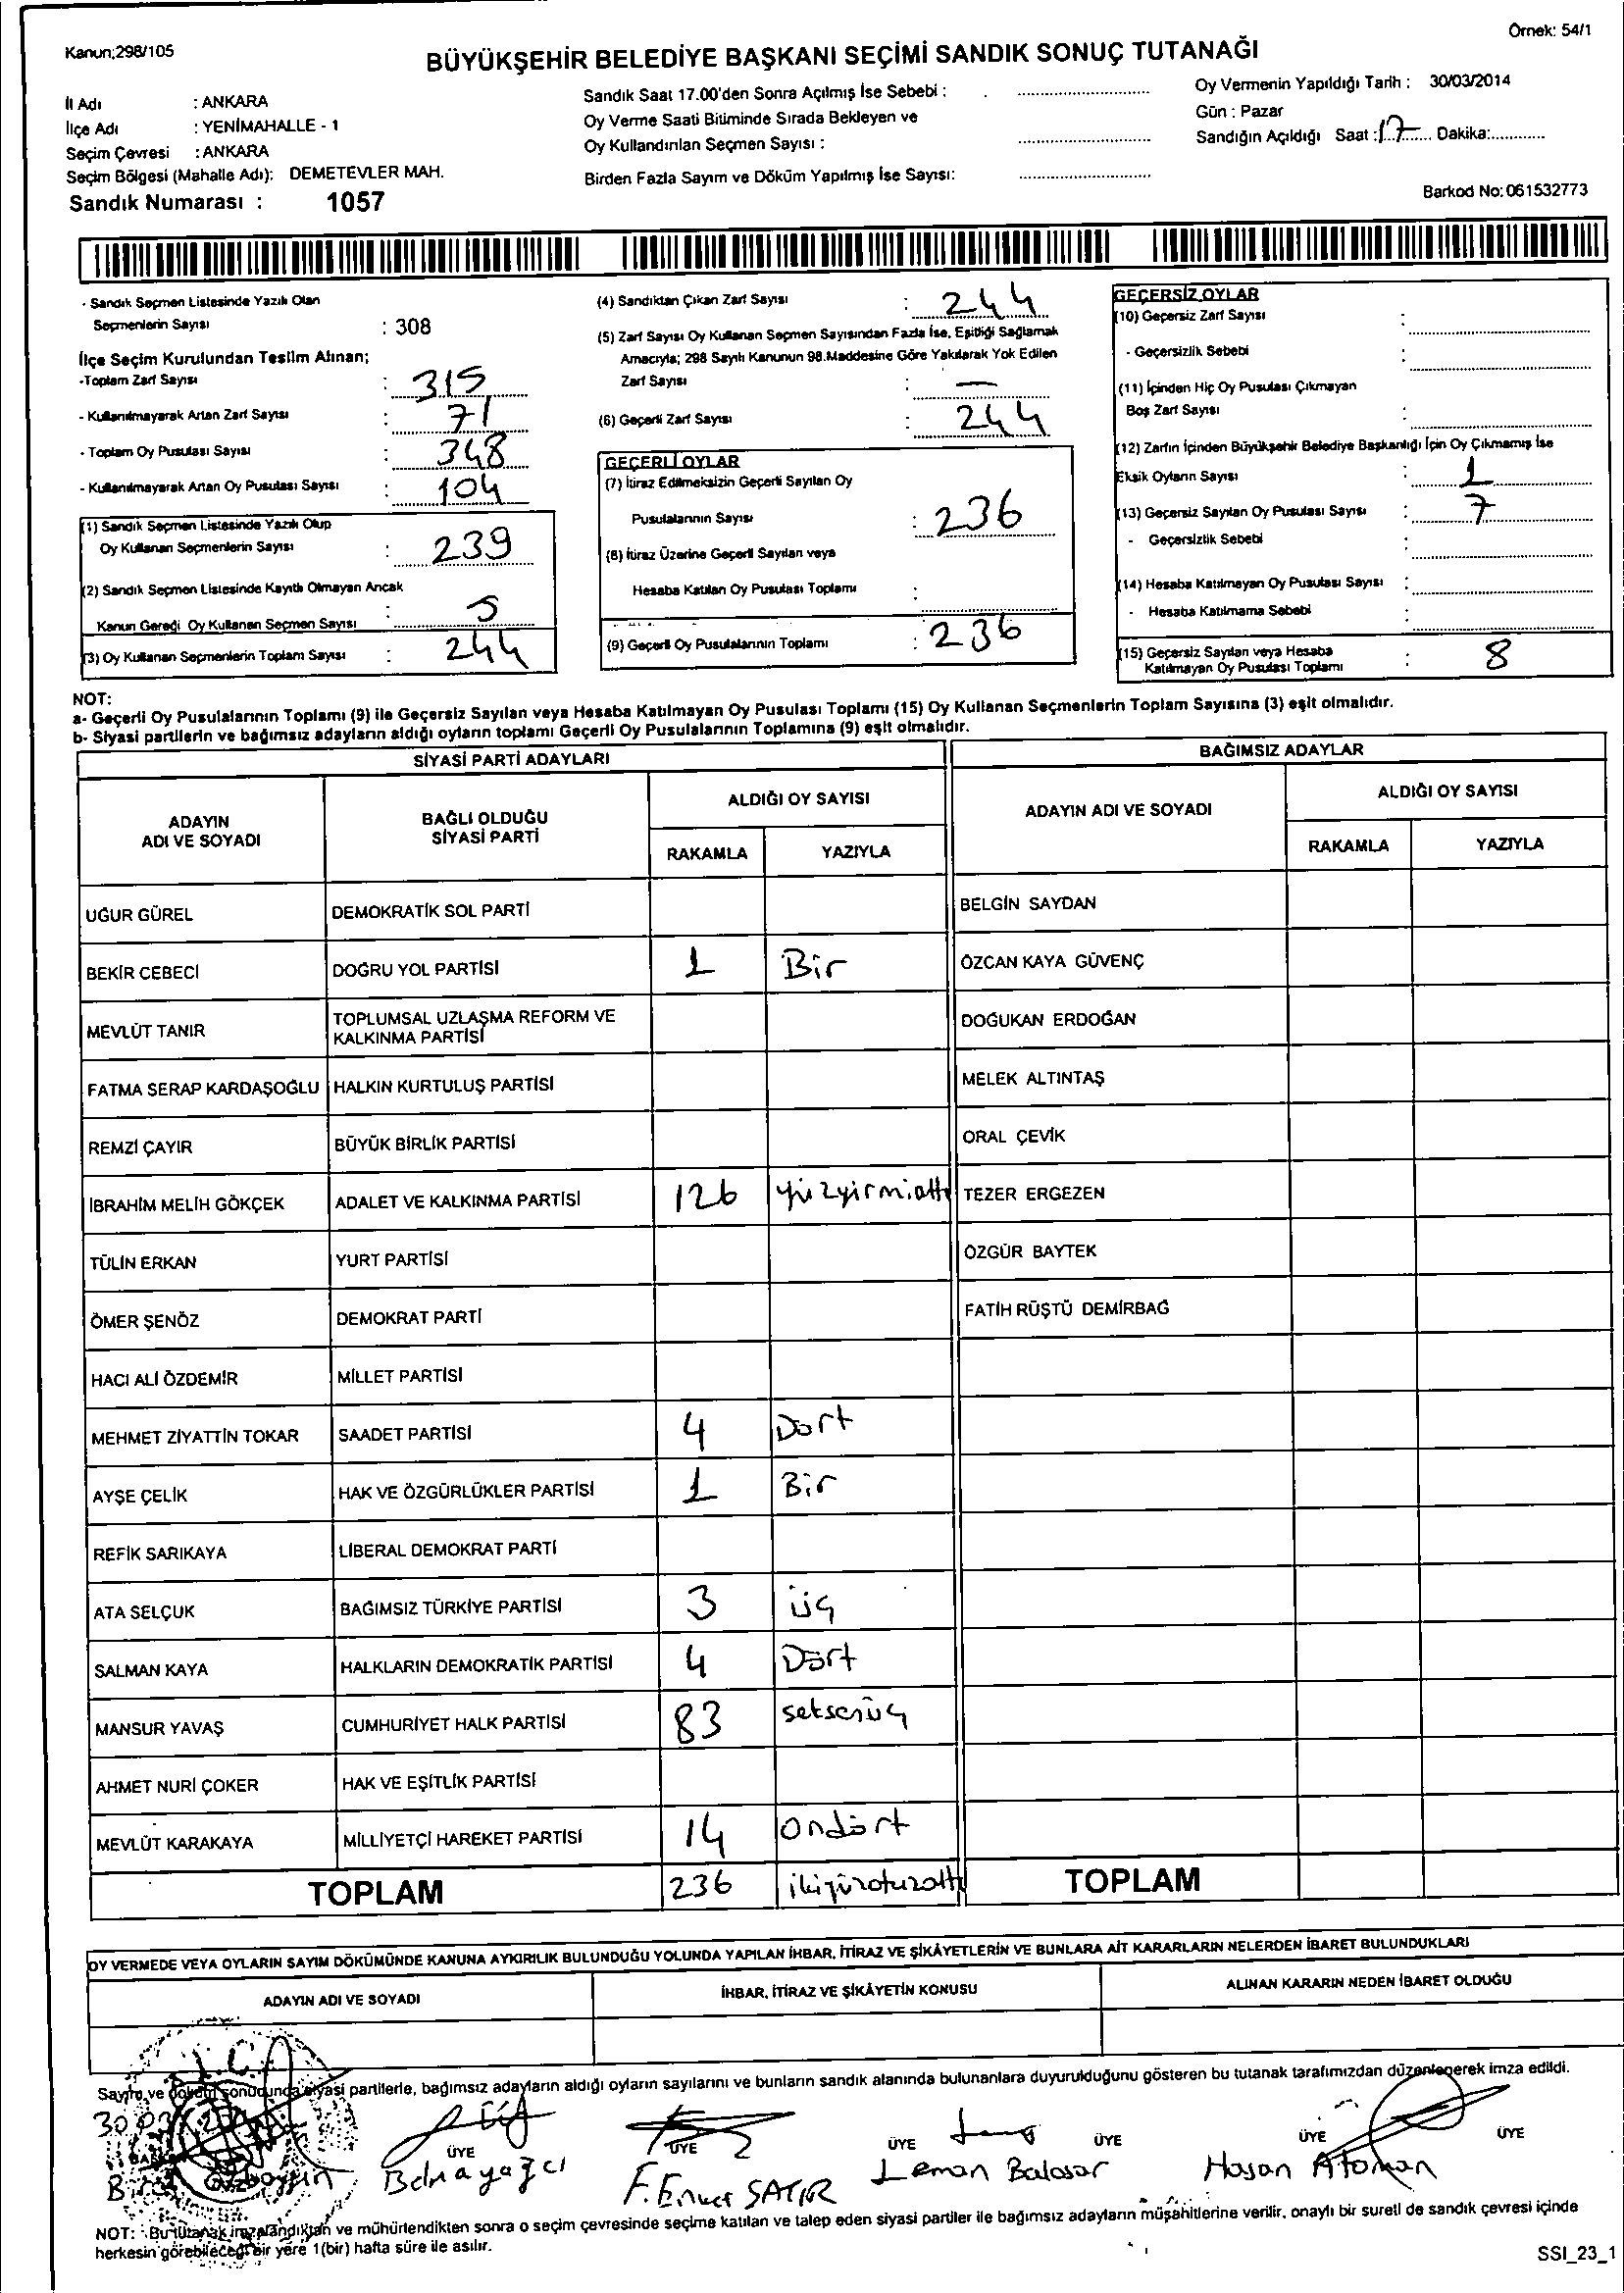 Kanun;298/105
Örnek: 54/1
BÜYÜKŞEHİR BELEDİYE BAŞKANI SEÇİMİ SANDIK SONUÇ TUTANAĞI
İl Adı : ANKARA
İlçe Adı : YENİMAHALLE - 1
Seçim Çevresi : ANKARA
Seçim Bölgesi (Mahalle Adı): DEMETEVLER MAH.
Sandık Numarası : 1057
Sandık Saat 17.00'den Sonra Açılmış İse Sebebi :
Oy Verme Saati Bitiminde Sırada Bekleyen ve
Oy Kullandırılan Seçmen Sayısı :
Birden Fazla Sayım ve Döküm Yapılmış İse Sayısı:
Oy Vermenin Yapıldığı Tarih : 30/03/2014
Gün : Pazar
Sandığın Açıldığı Saat : 17 Dakika:
Barkod No: 061532773
- Sandık Seçmen Listesinde Yazılı Olan
Seçmenlerin Sayısı : 308
İlçe Seçim Kurulundan Teslim Alınan;
-Toplam Zarf Sayısı : 315
- Kullanılmayarak Artan Zarf Sayısı : 71
- Toplam Oy Pusulası Sayısı : 348
- Kullanılmayarak Artan Oy Pusulası Sayısı : 104
(1) Sandık Seçmen Listesinde Yazılı Olup
Oy Kullanan Seçmenlerin Sayısı : 239
(2) Sandık Seçmen Listesinde Kayıtlı Olmayan Ancak
Kanun Gereği Oy Kullanan Seçmen Sayısı : 5
(3) Oy Kullanan Seçmenlerin Toplam Sayısı : 244
(4) Sandıktan Çıkan Zarf Sayısı : 244
(5) Zarf Sayısı Oy Kullanan Seçmen Sayısından Fazla İse, Eşitliği Sağlamak
Amacıyla; 298 Sayılı Kanunun 98.Maddesine Göre Yakılarak Yok Edilen
Zarf Sayısı : —
(6) Geçerli Zarf Sayısı : 244
GEÇERLİ OYLAR
(7) İtiraz Edilmeksizin Geçerli Sayılan Oy
Pusulalarının Sayısı : 236
(8) İtiraz Üzerine Geçerli Sayılan veya
Hesaba Katılan Oy Pusulası Toplamı :
(9) Geçerli Oy Pusulalarının Toplamı : 236
GEÇERSİZ OYLAR
(10) Geçersiz Zarf Sayısı :
- Geçersizlik Sebebi :
(11) İçinden Hiç Oy Pusulası Çıkmayan
Boş Zarf Sayısı :
(12) Zarfın İçinden Büyükşehir Belediye Başkanlığı İçin Oy Çıkmamış İse
Eksik Oyların Sayısı : 1
(13) Geçersiz Sayılan Oy Pusulası Sayısı : 7
- Geçersizlik Sebebi :
(14) Hesaba Katılmayan Oy Pusulası Sayısı :
- Hesaba Katılmama Sebebi :
(15) Geçersiz Sayılan veya Hesaba
Katılmayan Oy Pusulası Toplamı : 8
NOT:
a- Geçerli Oy Pusulalarının Toplamı (9) ile Geçersiz Sayılan veya Hesaba Katılmayan Oy Pusulası Toplamı (15) Oy Kullanan Seçmenlerin Toplam Sayısına (3) eşit olmalıdır.
b- Siyasi partilerin ve bağımsız adayların aldığı oyların toplamı Geçerli Oy Pusulalarının Toplamına (9) eşit olmalıdır.
SİYASİ PARTİ ADAYLARI
BAĞIMSIZ ADAYLAR
ADAYIN
ADI VE SOYADI
BAĞLI OLDUĞU
SİYASİ PARTİ
ALDIĞI OY SAYISI
RAKAMLA YAZIYLA
ADAYIN ADI VE SOYADI
ALDIĞI OY SAYISI
RAKAMLA YAZIYLA
UĞUR GÜREL DEMOKRATİK SOL PARTİ BELGİN SAYDAN
BEKİR CEBECİ DOĞRU YOL PARTİSİ 1 Bir ÖZCAN KAYA GÜVENÇ
MEVLÜT TANIR TOPLUMSAL UZLAŞMA REFORM VE
KALKINMA PARTİSİ DOĞUKAN ERDOĞAN
FATMA SERAP KARDAŞOĞLU HALKIN KURTULUŞ PARTİSİ MELEK ALTINTAŞ
REMZİ ÇAYIR BÜYÜK BİRLİK PARTİSİ ORAL ÇEVİK
İBRAHİM MELİH GÖKÇEK ADALET VE KALKINMA PARTİSİ 126 Yüzyirmialtı TEZER ERGEZEN
TÜLİN ERKAN YURT PARTİSİ ÖZGÜR BAYTEK
ÖMER ŞENÖZ DEMOKRAT PARTİ FATİH RÜŞTÜ DEMİRBAĞ
HACI ALİ ÖZDEMİR MİLLET PARTİSİ
MEHMET ZİYATTİN TOKAR SAADET PARTİSİ 4 Dort
AYŞE ÇELİK HAK VE ÖZGÜRLÜKLER PARTİSİ 1 Bir
REFİK SARIKAYA LİBERAL DEMOKRAT PARTİ
ATA SELÇUK BAĞIMSIZ TÜRKİYE PARTİSİ 3 üç
SALMAN KAYA HALKLARIN DEMOKRATİK PARTİSİ 4 Dört
MANSUR YAVAŞ CUMHURİYET HALK PARTİSİ 83 seksenüç
AHMET NURİ ÇOKER HAK VE EŞİTLİK PARTİSİ
MEVLÜT KARAKAYA MİLLİYETÇİ HAREKET PARTİSİ 14 Ondört
TOPLAM 236 ikiyüzotuzaltı TOPLAM
OY VERMEDE VEYA OYLARIN SAYIM DÖKÜMÜNDE KANUNA AYKIRILIK BULUNDUĞU YOLUNDA YAPILAN İHBAR, İTİRAZ VE ŞİKÂYETLERİN VE BUNLARA AİT KARARLARIN NELERDEN İBARET BULUNDUKLARI
ADAYIN ADI VE SOYADI İHBAR, İTİRAZ VE ŞİKÂYETİN KONUSU ALINAN KARARIN NEDEN İBARET OLDUĞU
Sayım ve döküm sonucunda siyasi partilerle, bağımsız adayların aldığı oyların sayılarını ve bunların sandık alanında bulunanlara duyurulduğunu gösteren bu tutanak tarafımızdan düzenlenerek imza edildi.
ÜYE ÜYE ÜYE ÜYE ÜYE ÜYE
Leman Hasan
NOT: Bu tutanak imzalandıktan ve mühürlendikten sonra o seçim çevresinde seçime katılan ve talep eden siyasi partiler ile bağımsız adayların müşahitlerine verilir, onaylı bir sureti de sandık çevresi içinde
herkesin görebileceği bir yere 1(bir) hafta süre ile asılır.
SSI_23_1